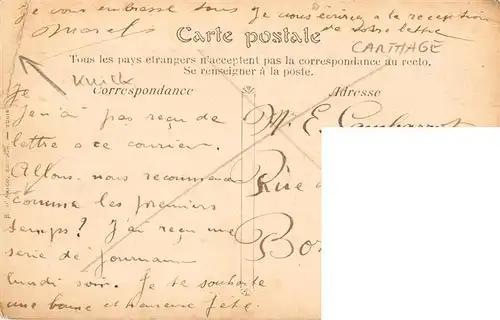 je vous embrasse tous je vous écrirai a la reception
Marcel de votre lettre
Carte postale
CARTHAGE
Tous les pays étrangers n'acceptent pas la correspondance au recto.
Se renseigner à la poste.
Correspondance
Adresse
Je
n'ai pas reçu de
lettre a ce courrier.
Allons nous recommencer
comme les premiers
temps? J'ai reçu une
serie de journaux
lundi soir. Je te souhaite
une bonne et heureuse fête.
Mr E.
Rue
Bo